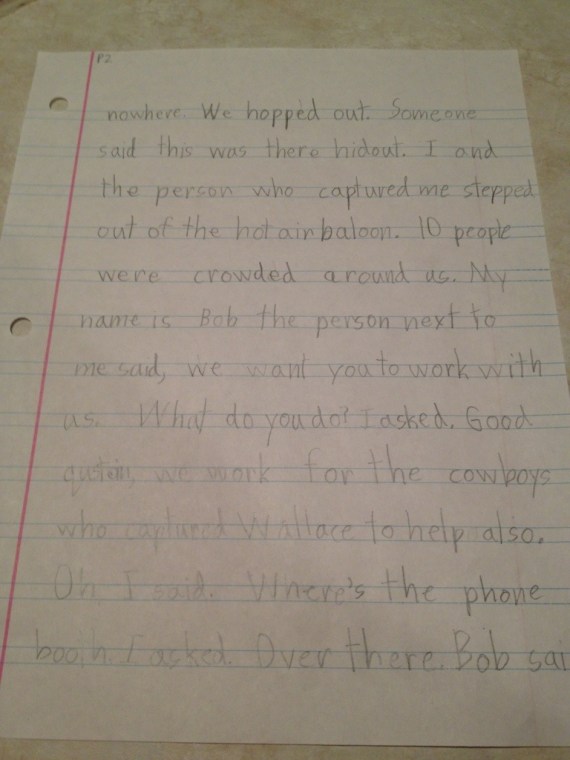 P2
nowhere. We hopped out. Someone
said this was there hidout. I and
the person who captured me stepped
out of the hot air baloon. 10 people
were crowded around us. My
name is Bob the person next to
me said, we want you to work with
us. What do you do? I asked. Good
we work for the cowboys
who captured Wallace to help also.
Oh I said. Where's the phone
booth I asked. Over there. Bob sai